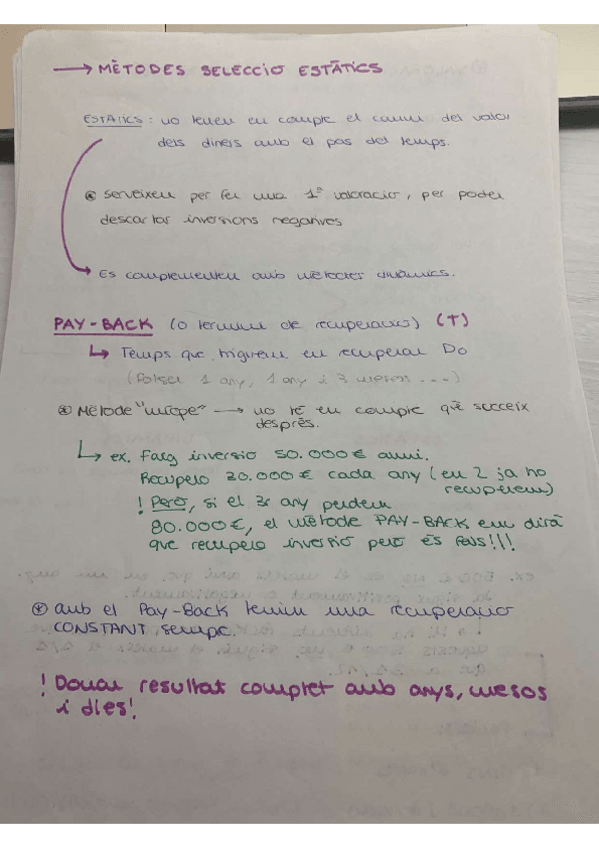 → MÈTODES SELECCIO ESTÀTICS
ESTÀTICS: no tenen en compte el canvi del valor
dels diners amb el pas del temps.
* serveixen per fer una 1ª valoració, per poder
descartar inversions negatives
Es complementen amb mètodes dinàmics.
PAY-BACK (o termini de recuperació) (T)
↳ Temps que triguem en recuperar Do
(Potser 1 any, 1 any i 7 mesos ...)
* Mètode "miope" → no té en compte què succeix
després.
↳ ex. Faig inversio 50.000€ avui.
Recupero 30.000€ cada any (en 2 ja ho
recuperem)
! Però, si el 3r any perdem
80.000€, el mètode PAY-BACK em dirà
que recupero inversió però és fals!!!
* amb el Pay-Back tenim una recuperació
CONSTANT, sempre.
! Donar resultat complet amb anys, mesos
i dies!